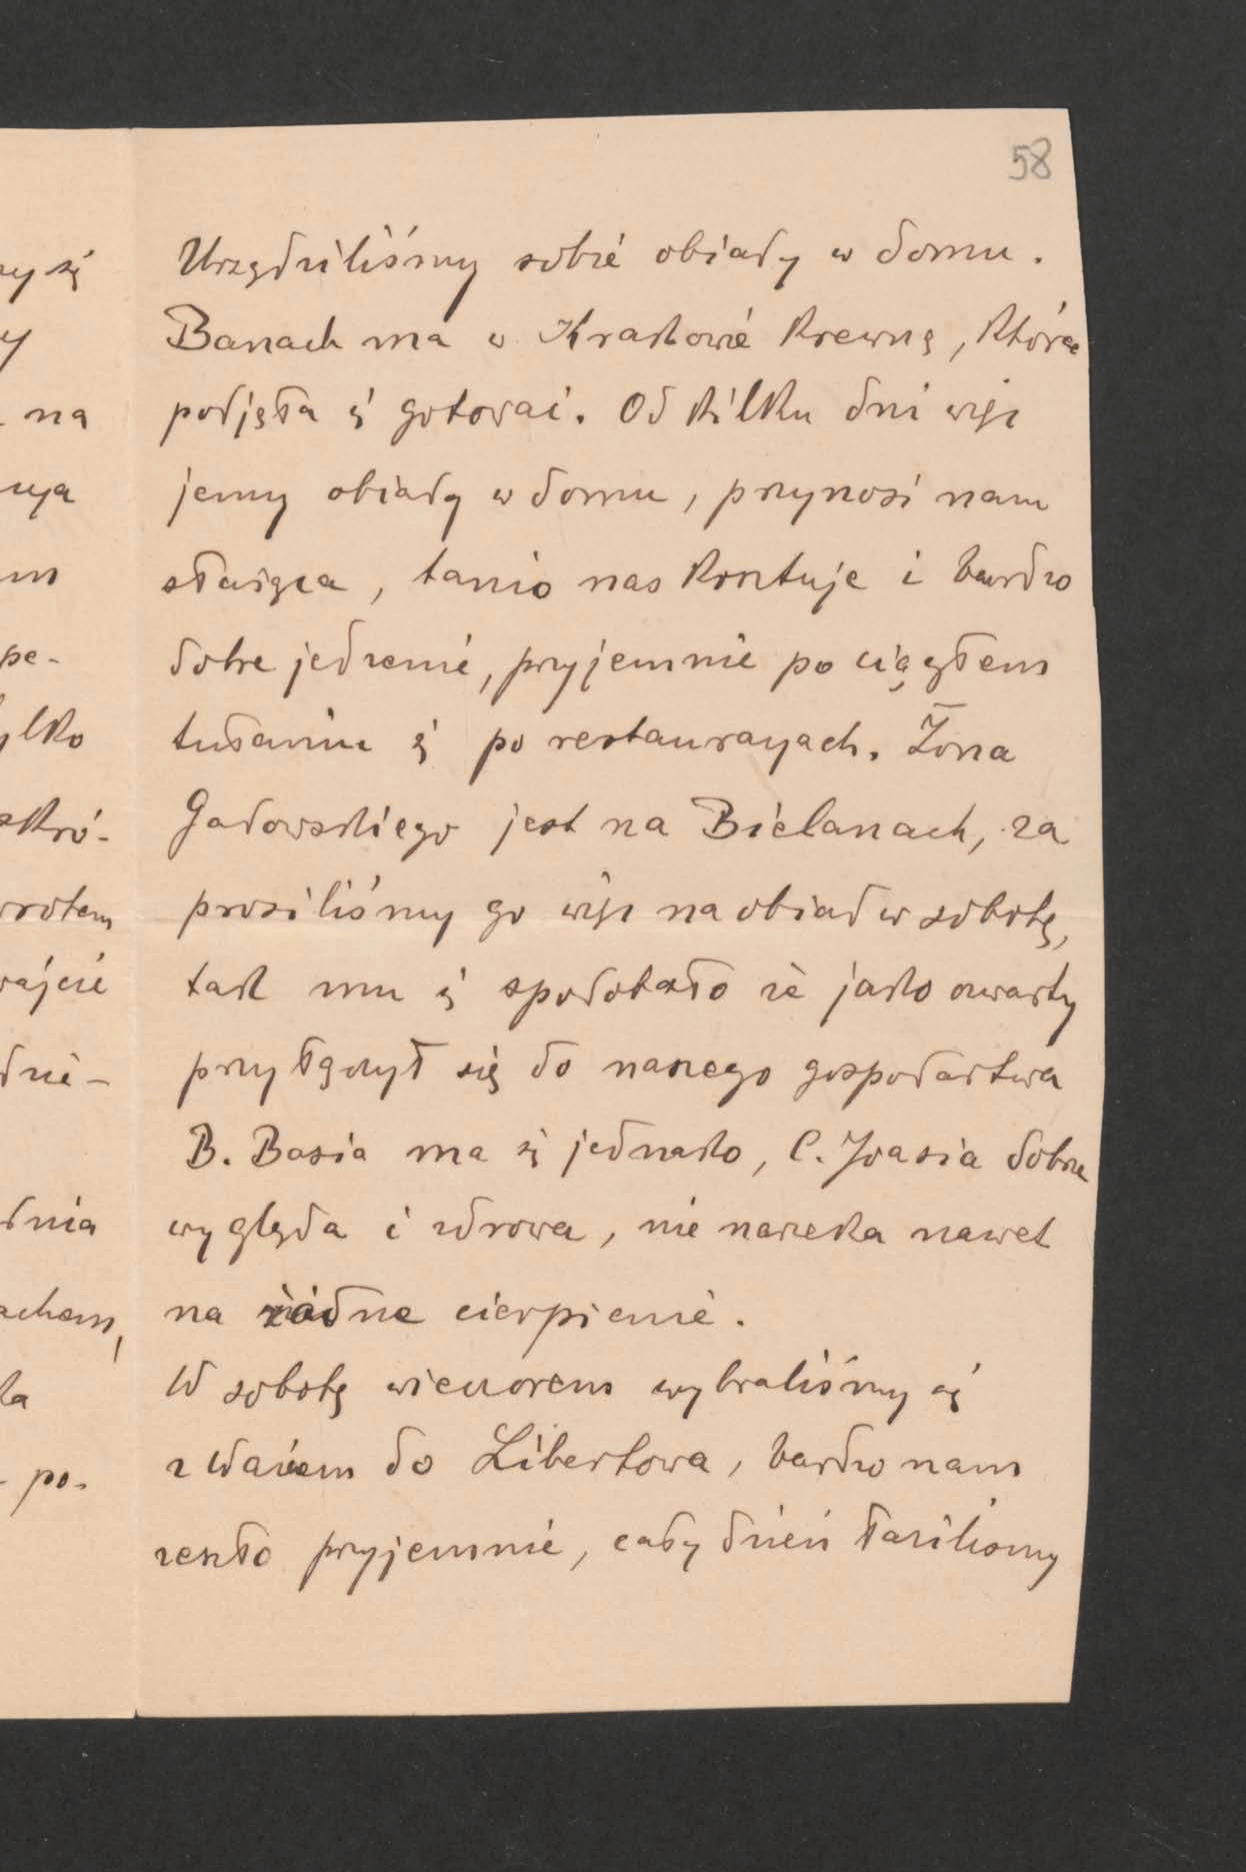 58
Urządziliśmy sobie obiady w domu.
Banach ma w Krakowie krewną, która
podjęła się gotować. Od kilku dni więc
jemy obiady w domu, przynosi nam
służąca, tanio nas kosztuje i bardzo
dobre jedzenie, przyjemnie po ciągłem
tułaniu się po restauracyach. Żona
Gadowskiego jest na Bielanach, za
prosiliśmy go więc na obiad w sobotę,
tak mu się spodobało że jako czwarty
przyłączył się do naszego gospodarstwa
B. Basia ma się jednako, C. Joasia dobrze
wygląda i zdrowa, nie narzeka nawet
na żadne cierpienie.
W sobotę wieczorem wybraliśmy się
z Watem do Libertowa, bardzo nam
zeszło przyjemnie, cały dzień łaziliśmy
ry się
y
na
cya
m
pe-
ylko
skró-
wrotem
wajcie
dnie-
dnia
achem,
ła
- po-